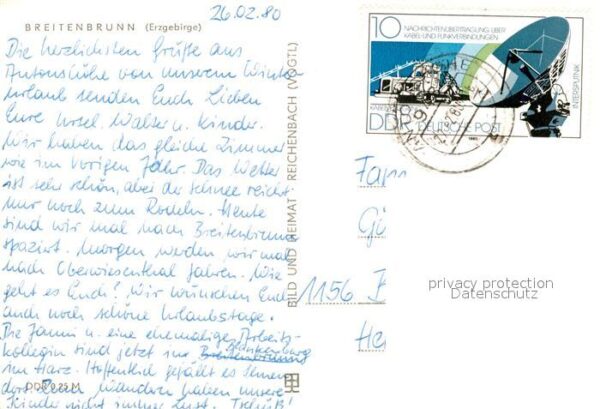 26.02.80
BREITENBRUNN (Erzgebirge)
Die herzlichsten Grüße aus
Antonshöhe von unserem Winter-
urlaub senden Euch Lieben
Eure Ursel, Walter u. Kinder.
Wir haben das gleiche Zimmer
wie im vorigen Jahr. Das Wetter
ist sehr schön, aber der Schnee reicht
nur noch zum Rodeln. Heute
sind wir mal nach Breitenbrunn
spaziert. Morgen werden wir mal
nach Oberwiesenthal fahren. Wie
geht es Euch? Wir wünschen Euch
auch noch schöne Urlaubstage.
Die Janni u. eine ehemalige Arbeits-
kollegin sind jetzt in
im Harz. Hoffentlich gefällt es Ihnen
dort. Denn wandern haben unsere
Kinder nicht immer Lust. Tschüß!
DDR 0,25 M
BILD UND HEIMAT · REICHENBACH (VOGTL)
10
NACHRICHTENÜBERTRAGUNG ÜBER
KABEL- UND FUNKVERBINDUNGEN
INTERSPUTNIK
DDR DEUTSCHE POST
Fam
Gü
1156 B
He
privacy protection
Datenschutz